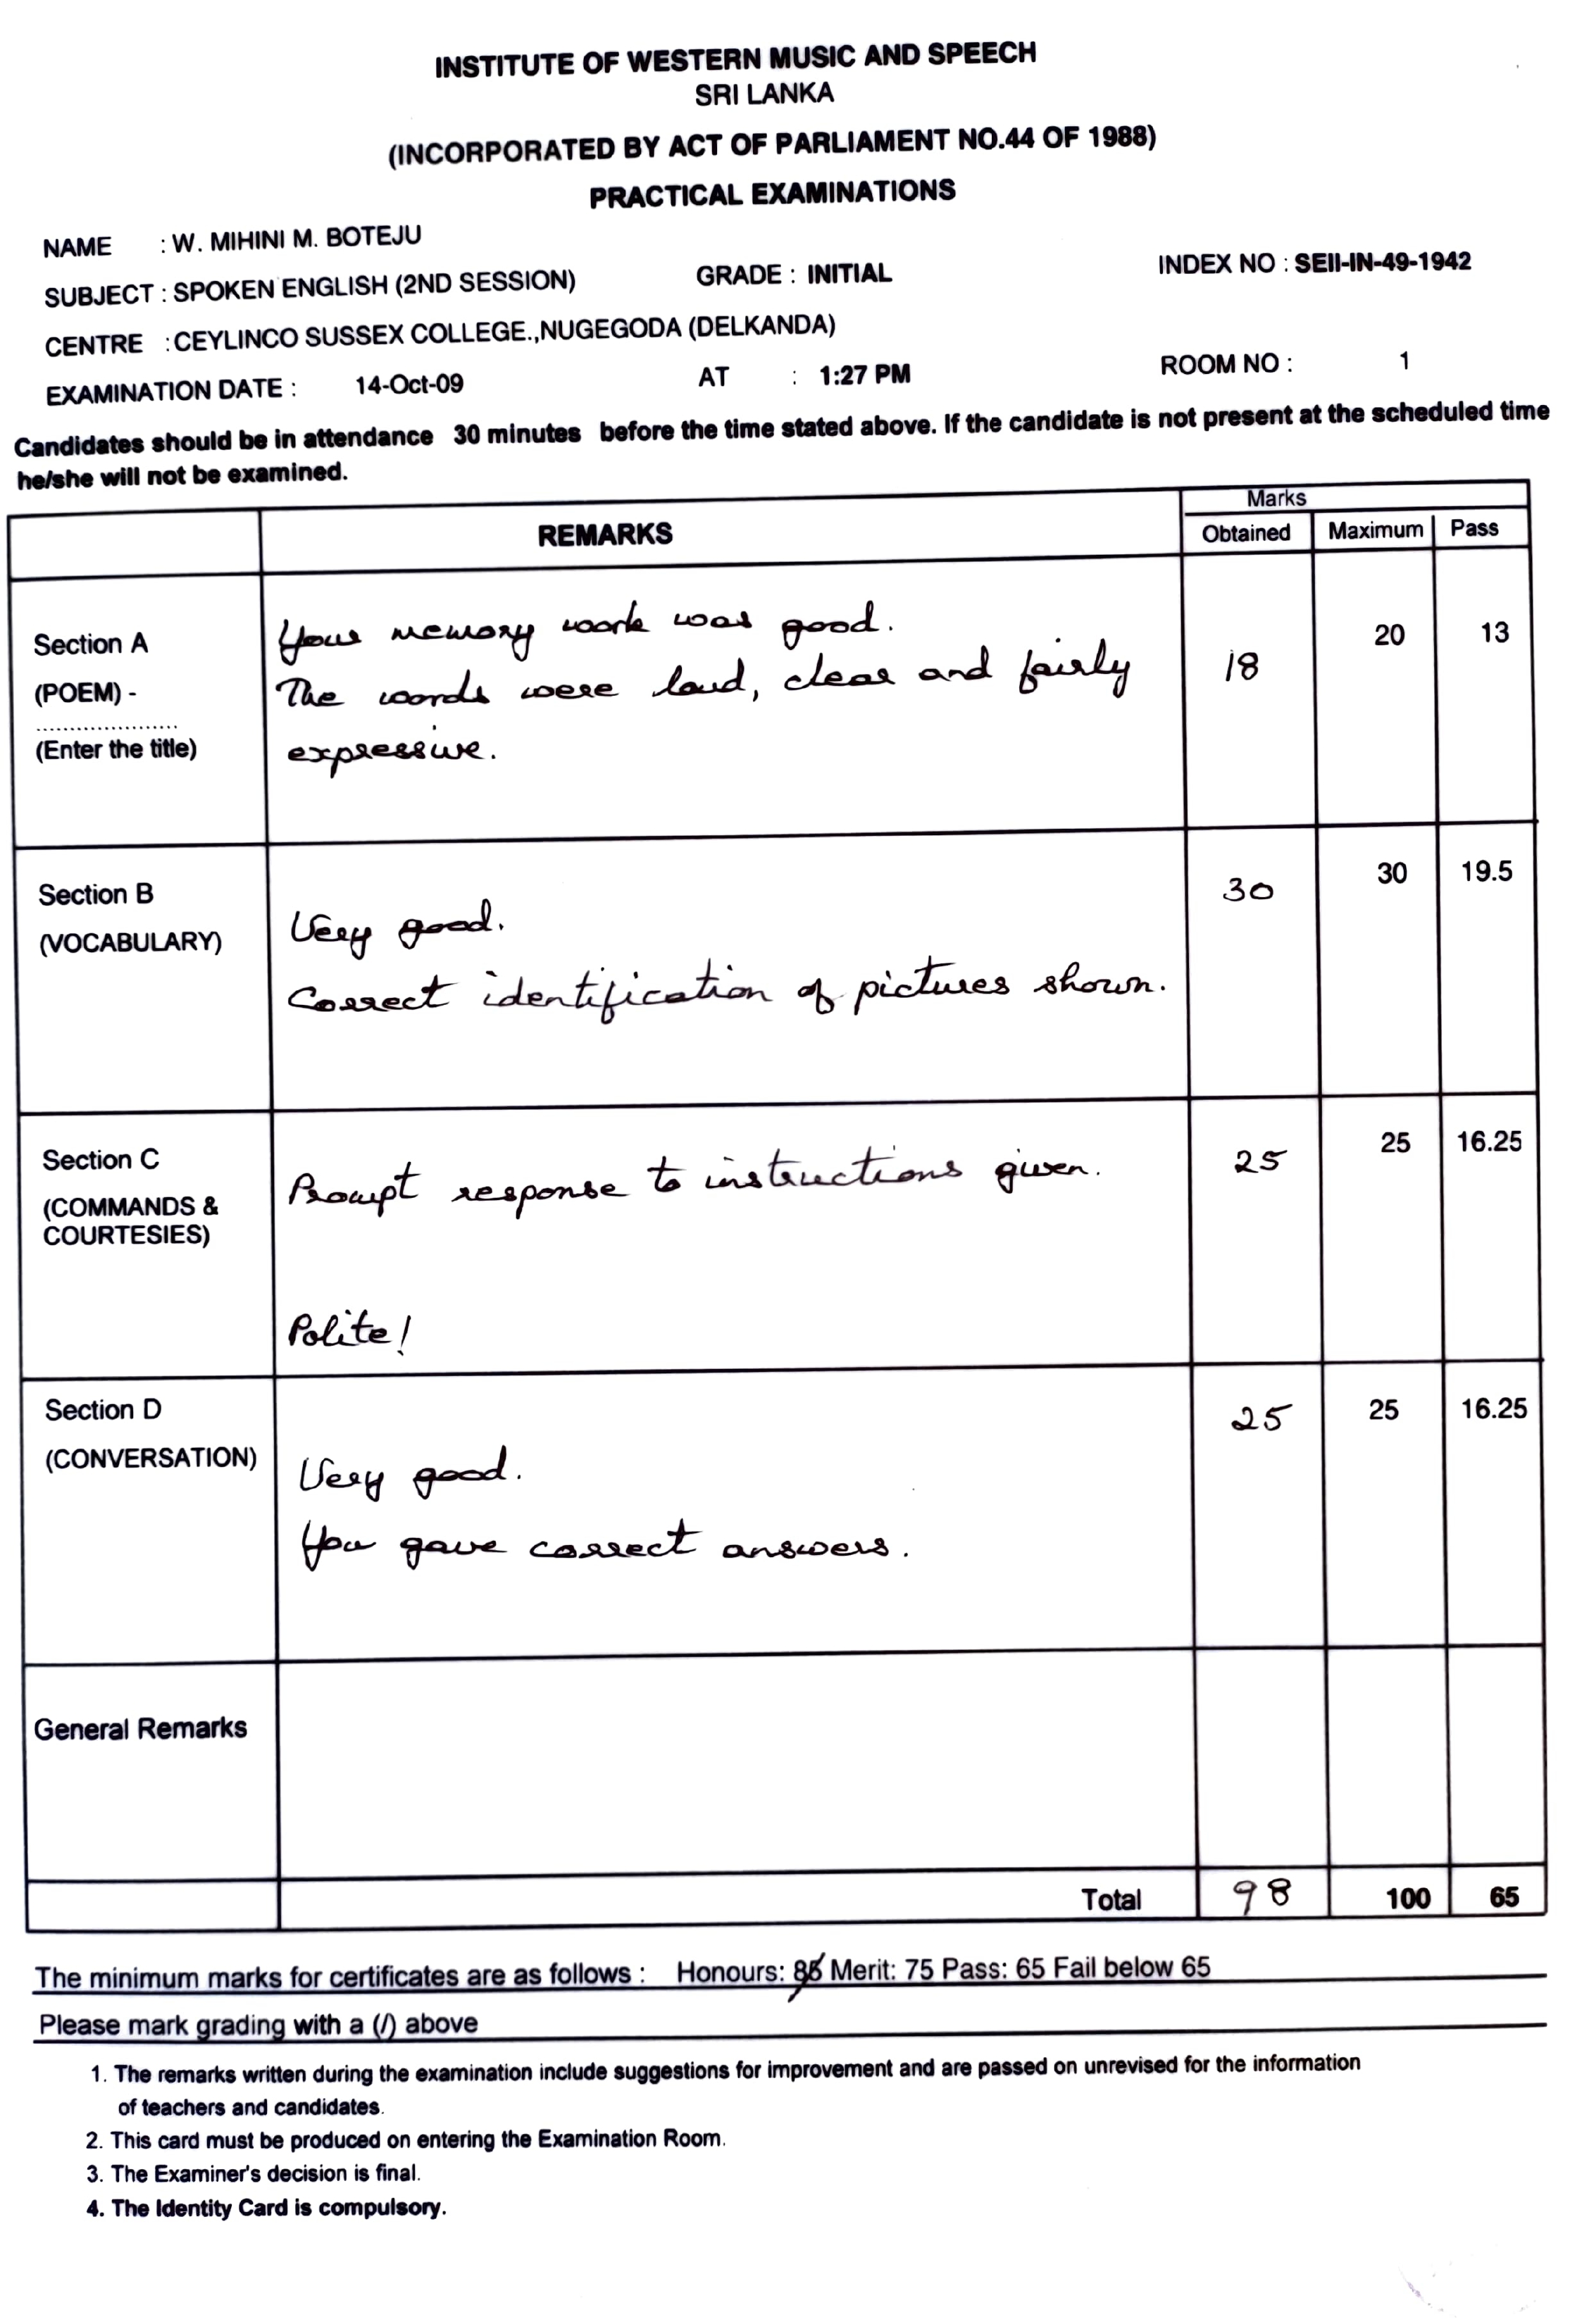 INSTITUTE OF WESTERN MUSIC AND SPEECH
SRI LANKA
(INCORPORATED BY ACT OF PARLIAMENT NO.44 OF 1988)
PRACTICAL EXAMINATIONS
NAME : W. MIHINI M. BOTEJU
SUBJECT : SPOKEN ENGLISH (2ND SESSION) GRADE : INITIAL INDEX NO : SEII-IN-49-1942
CENTRE : CEYLINCO SUSSEX COLLEGE.,NUGEGODA (DELKANDA)
EXAMINATION DATE : 14-Oct-09 AT : 1:27 PM ROOM NO : 1
Candidates should be in attendance 30 minutes before the time stated above. If the candidate is not present at the scheduled time
he/she will not be examined.
Marks
REMARKS Obtained Maximum Pass
Section A
(POEM) -
.....................
(Enter the title)
Your memory work was good.
The words were loud, clear and fairly
expressive.
18 20 13
Section B
(VOCABULARY)
Very good.
Correct identification of pictures shown.
30 30 19.5
Section C
(COMMANDS &
COURTESIES)
Prompt response to instructions given.
Polite!
25 25 16.25
Section D
(CONVERSATION)
Very good.
You gave correct answers.
25 25 16.25
General Remarks
Total 98 100 65
The minimum marks for certificates are as follows : Honours: 85 Merit: 75 Pass: 65 Fail below 65
Please mark grading with a (/) above
1. The remarks written during the examination include suggestions for improvement and are passed on unrevised for the information
of teachers and candidates.
2. This card must be produced on entering the Examination Room.
3. The Examiner's decision is final.
4. The Identity Card is compulsory.